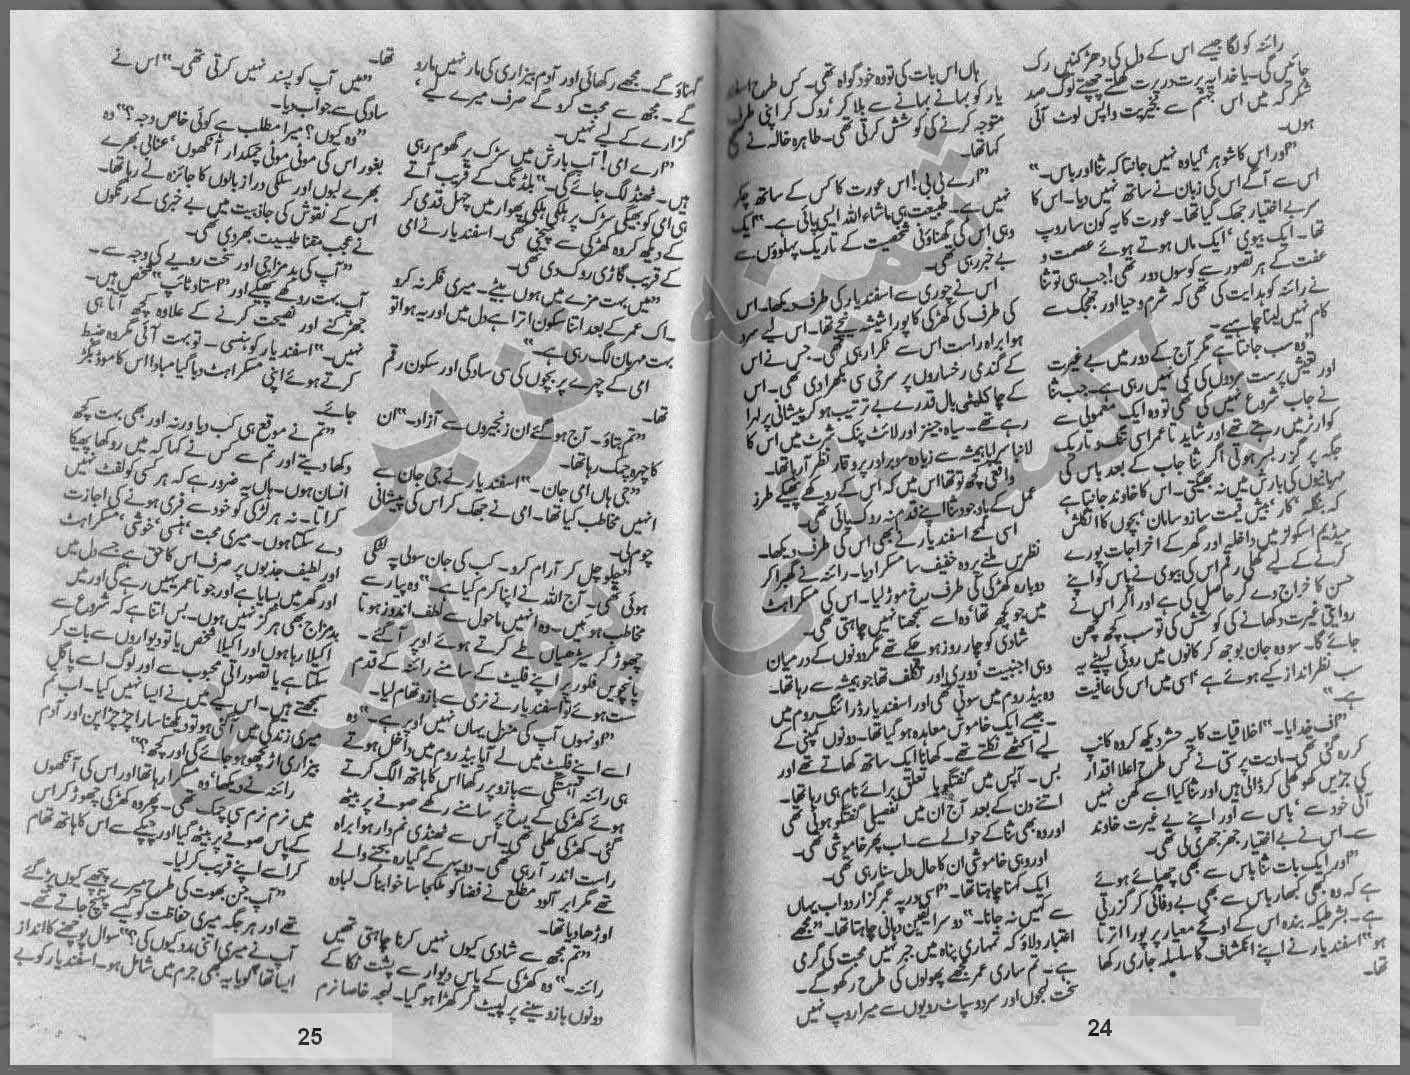 رائنہ کو لگا جیسے اس کے دل کی دھڑکنیں رک
جائیں گی۔ یا خدا یہ پرت در پرت کھلتے چھپتے لوگ صد
شکر کہ میں اس جہنم سے بخیریت واپس لوٹ آئی
ہوں۔
"اور اس کا شوہر 'کیا وہ نہیں جانتا کہ ثنا اور باس۔"
اس سے آگے اس کی زبان نے ساتھ نہیں دیا۔ اس کا
سر بے اختیار جھک گیا تھا۔ عورت کا یہ کون سا روپ
تھا۔ ایک بیوی 'ایک ماں ہوتے ہوئے عصمت و
عفت کے ہر تصور سے کوسوں دور تھی! جب ہی تو ثنا
نے رائنہ کو ہدایت کی تھی کہ شرم و حیا اور جھجک سے
کام نہیں لینا چاہیے۔
"وہ سب جانتا ہے مگر آج کے دور میں بے غیرت
اور تعیش پرست مردوں کی کمی نہیں رہی ہے۔ جب ثنا
نے جاب شروع نہیں کی تھی تو وہ ایک معمولی سے
کوارٹر میں رہتے تھے اور شاید تا عمر اسی تنگ و تاریک
جگہ پر گزر بسر ہوتی اگر ثنا جاب کے بعد باس کی
مہربانیوں کی بارش میں نہ بھیگتی۔ اس کا خاوند جانتا ہے
کہ بنگلہ 'کار 'بیش قیمت ساز و سامان 'بچوں کا انگلش
میڈیم اسکولز میں داخلہ اور گھر کے اخراجات پورے
کرنے کے لیے کھلی رقم اس کی بیوی نے باس کو اپنے
حسن کا خراج دے کر حاصل کی ہے اور اگر اس نے
روایتی غیرت دکھانے کی کوشش کی تو سب کچھ چھن
جائے گا۔ سو وہ جان بوجھ کر کانوں میں روئی لپیٹے یہ
سب نظر انداز کیے ہوئے ہے 'اسی میں اس کی عافیت
ہے۔"
"اف خدایا۔" اخلاقیات کا یہ حشر دیکھ کر وہ کانپ
کر رہ گئی تھی۔ مادیت پرستی نے کس طرح اعلا اقدار
کی جڑیں کھوکھلی کر ڈالی ہیں اور ثنا کیا اسے گھن نہیں
آتی خود سے 'باس سے اور اپنے بے غیرت خاوند
سے۔ اس نے بے اختیار جھرجھری لی تھی۔
"اور ایک بات ثنا باس سے بھی چھپائے ہوئے
ہے کہ وہ کبھی کبھار باس سے بھی بے وفائی کر گزرتی
ہے۔ بشرطیکہ بندہ اس کے اونچے معیار پر پورا اترتا
ہو۔" اسفندیار نے اپنے انکشاف کا سلسلہ جاری رکھا
تھا۔
ہاں اس بات کی تو وہ خود گواہ تھی۔ کس طرح اسفند
یار کو بہانے بہانے سے بلا کر 'روک کر اپنی طرف
متوجہ کرنے کی کوشش کرتی تھی۔ طاہرہ خالہ نے
کہا تھا۔
"ارے بی بی! اس عورت کا کس کے ساتھ چکر
نہیں ہے۔ طبیعت ہی ماشاء اللہ ایسی پائی ہے۔" ایک
وہی اس کی گھناؤنی شخصیت کے تاریک پہلوؤں سے
بے خبر رہی تھی۔
اس نے چوری سے اسفندیار کی طرف دیکھا۔ اس
کی طرف کی کھڑکی کا پورا شیشہ نیچے تھا۔ اس لیے سرد
ہوا براہ راست اس سے ٹکرا رہی تھی۔ جس نے اس
کے گندمی رخساروں پر سرخی سی بکھرا دی تھی۔ اس
کے چاکلیٹی بال قدرے بے ترتیب ہو کر پیشانی پر لہرا
رہے تھے۔ سیاہ جینز اور لائٹ پنک شرٹ میں اس کا
لانبا سراپا ہمیشہ سے زیادہ سوبر اور پر وقار نظر آ رہا تھا۔
واقعی کچھ تو تھا اس میں کہ اس کے روکھے پھیکے طرز
عمل کے باوجود ثنا اپنے قدم نہ روک پائی تھی۔
اسی لمحے اسفندیار نے بھی اس کی طرف دیکھا۔
نظریں ملنے پر وہ خفیف سا مسکرا دیا۔ رائنہ نے گھبرا کر
دوبارہ کھڑکی کی طرف رخ موڑ لیا۔ اس کی مسکراہٹ
میں جو کچھ تھا 'وہ اسے سمجھنا نہیں چاہتی تھی۔
شادی کو چار روز ہو چکے تھے مگر دونوں کے درمیان
وہی اجنبیت 'دوری اور تکلف تھا جو ہمیشہ سے رہا تھا۔
وہ بیڈ روم میں سوتی تھی اور اسفندیار ڈرائنگ روم میں
۔ جیسے ایک خاموش معاہدہ ہو گیا تھا۔ دونوں کمپنی کے
لیے اکٹھے نکلتے تھے۔ کھانا ایک ساتھ کھاتے تھے اور
بس۔ آپس میں گفتگو یا تعلق برائے نام ہی رہا تھا۔
اتنے دن کے بعد آج ان میں تفصیلی گفتگو ہوئی تھی
اور وہ بھی ثنا کے حوالے سے۔ اب پھر خاموشی تھی۔
اور وہی خاموشی ان کا حال دل سنا رہی تھی۔
ایک کہنا چاہتا تھا۔ "اسی در پہ عمر گزار دو اب یہاں
سے کہیں نہ جانا۔" دوسرا یقین دہانی چاہتا تھا۔ "مجھے
اعتبار دلاؤ کہ تمہاری پناہ میں جبر نہیں محبت کی گرمی
ہے۔ تم ساری عمر مجھے پھولوں کی طرح رکھو گے۔
سخت لہجوں اور سرد و سپاٹ رویوں سے میرا روپ نہیں
24
گہناؤ گے۔ مجھے رکھائی اور آدم بیزاری کی مار نہیں مارو
گے۔ مجھ سے محبت کرو گے صرف میرے لیے '
گزارے کے لیے نہیں۔
"ارے امی! آپ بارش میں سڑک پر گھوم رہی
ہیں۔ ٹھنڈ لگ جائے گی۔" بلڈنگ کے قریب آتے
ہی امی کو بھیگی سڑک پر ہلکی ہلکی پھوار میں چہل قدمی کر
کے دیکھ کر وہ کھڑکی سے چیخی تھی۔ اسفندیار نے امی
کے قریب گاڑی روک دی تھی۔
"میں بہت مزے میں ہوں بیٹے۔ میری فکر نہ کرو
۔ اک عمر کے بعد اتنا سکون اترا ہے دل میں اور یہ ہوا تو
بہت مہربان لگ رہی ہے۔"
امی کے چہرے پر بچوں کی سی سادگی اور سکون رقم
تھا۔
"تم بتاؤ۔ آج ہو گئے ان زنجیروں سے آزاد۔" ان
کا چہرہ چمک رہا تھا۔
"جی ہاں امی جان۔" اسفندیار نے جی جان سے
انہیں مخاطب کیا تھا۔ امی نے جھک کر اس کی پیشانی
چوم لی۔
"چلو چل کر آرام کرو۔ کب کی جان سولی پہ لٹکی
ہوئی تھی۔ آج اللہ نے اپنا کرم کیا ہے۔" وہ پیار سے
مخاطب ہوئیں۔ وہ انہیں ماحول سے لطف اندوز ہوتا
چھوڑ کر سیڑھیاں طے کرتے ہوئے اوپر آ گئے۔
پانچویں فلور پر اپنے فلیٹ کے سامنے رائنہ کے قدم
ست ہوئے تو اسفندیار نے نرمی سے بازو تھام لیا۔
"اونہوں آپ کی منزل یہاں نہیں اوپر ہے۔" وہ
اسے اپنے فلیٹ میں لے آیا بیڈ روم میں داخل ہوتے
ہی رائنہ آہستگی سے بازو پر رکھا اس کا ہاتھ الگ کرتے
ہوئے کھڑکی کے رخ پر سامنے رکھے صوفے پر بیٹھ
گئی۔ کھڑکی کھلی تھی۔ اس سے ٹھنڈی نم دار ہوا براہ
راست اندر آ رہی تھی۔ دوپہر کے گیارہ بجنے والے
تھے مگر ابر آلود مطلع نے فضا کو ملگجا سا خوابناک لبادہ
اوڑھا دیا تھا۔
"تم مجھ سے شادی کیوں نہیں کرنا چاہتی تھیں
رائنہ۔" وہ کھڑکی کے پاس دیوار سے پشت ٹکا کے
دونوں بازو سینے پر لپیٹ کر کھڑا ہو گیا۔ لہجہ خاصا نرم
تھا۔
"میں آپ کو پسند نہیں کرتی تھی۔" اس نے
سادگی سے جواب دیا۔
"وہ کیوں؟ میرا مطلب ہے کوئی خاص وجہ؟" وہ
بغور اس کی موٹی موٹی چمکدار آنکھوں 'عنابی بھرے
بھرے لبوں اور سلکی دراز بالوں کا جائزہ لے رہا تھا۔
اس کے نقوش کی جاذبیت میں بے خبری کے رنگوں
نے عجب مقناطیسیت بھر دی تھی۔
"آپ کی بدمزاجی اور سخت رویے کی وجہ سے۔
آپ بہت روکھے پھیکے اور "استاد ٹائپ" شخص ہیں۔
جھڑکنے اور نصیحت کرنے کے علاوہ کچھ آتا ہی
نہیں۔" اسفندیار کو ہنسی۔ تو بہت آئی مگر وہ ضبط
کرتے ہوئے اپنی مسکراہٹ دبا گیا مبادا اس کا موڈ بگڑ
جائے۔
"تم نے موقع ہی کب دیا ورنہ اور بھی بہت کچھ
دکھا دیتے اور تم سے کس نے کہا کہ میں روکھا پھیکا
انسان ہوں۔ ہاں یہ ضرور ہے کہ ہر کسی کو لفٹ نہیں
کراتا۔ نہ ہر لڑکی کو خود سے فری ہونے کی اجازت
دے سکتا ہوں۔ میری محبت 'ہنسی 'خوشی 'مسکراہٹ
اور لطیف جذبوں پر صرف اس کا حق ہے جسے دل میں
اور گھر میں بسایا ہے اور جو تا عمر یہیں رہے گی اور میں
بدمزاج بھی ہرگز نہیں ہوں۔ بس اتنا ہے کہ شروع سے
اکیلا رہا ہوں اور اکیلا شخص یا تو دیواروں سے بات کر
سکتا ہے یا تصوراتی محبوب سے اور لوگ اسے پاگل
سمجھتے ہیں۔ اس لیے میں نے ایسا نہیں کیا۔ اب تم
میری زندگی میں آ گئی ہو تو دیکھنا سارا چڑچڑا پن اور آدم
بیزاری اڑنچھو ہو جائے گی اور کچھ؟"
رائنہ نے دیکھا 'وہ مسکرا رہا تھا اور اس کی آنکھوں
میں نرم نرم سی چمک تھی۔ پھر وہ کھڑکی چھوڑ کر اس
کے پاس صوفے پر بیٹھ گیا اور چپکے سے اس کا ہاتھ تھام
کر اسے اپنے قریب کر لیا۔
"آپ جن بھوت کی طرح میرے پیچھے کیوں پڑ گئے
تھے اور ہر جگہ میری حفاظت کو کیسے پہنچ جاتے تھے۔
آپ نے میری اتنی مدد کیوں کی؟" سوال پوچھنے کا انداز
ایسا تھا گویا۔ یہ کبھی جرم میں شامل ہو۔ اسفندیار کو بے
25